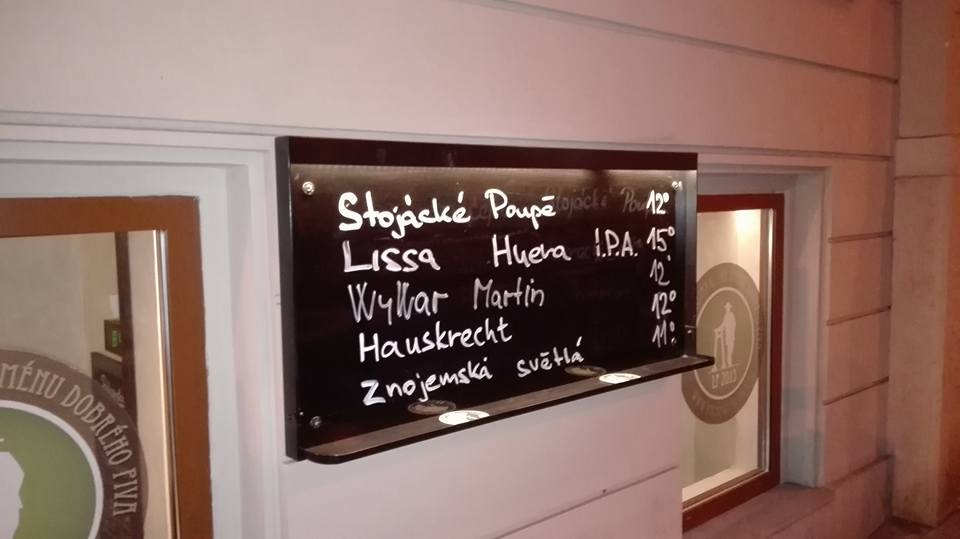 Stojácké Poupě 12°
Lissa Huera I.P.A. 15°
Wylkar Martin 12°
Hauskrecht 12°
Znojemská světlá 11°
MÉNU DOBRÉHO PIVA
LP 2013